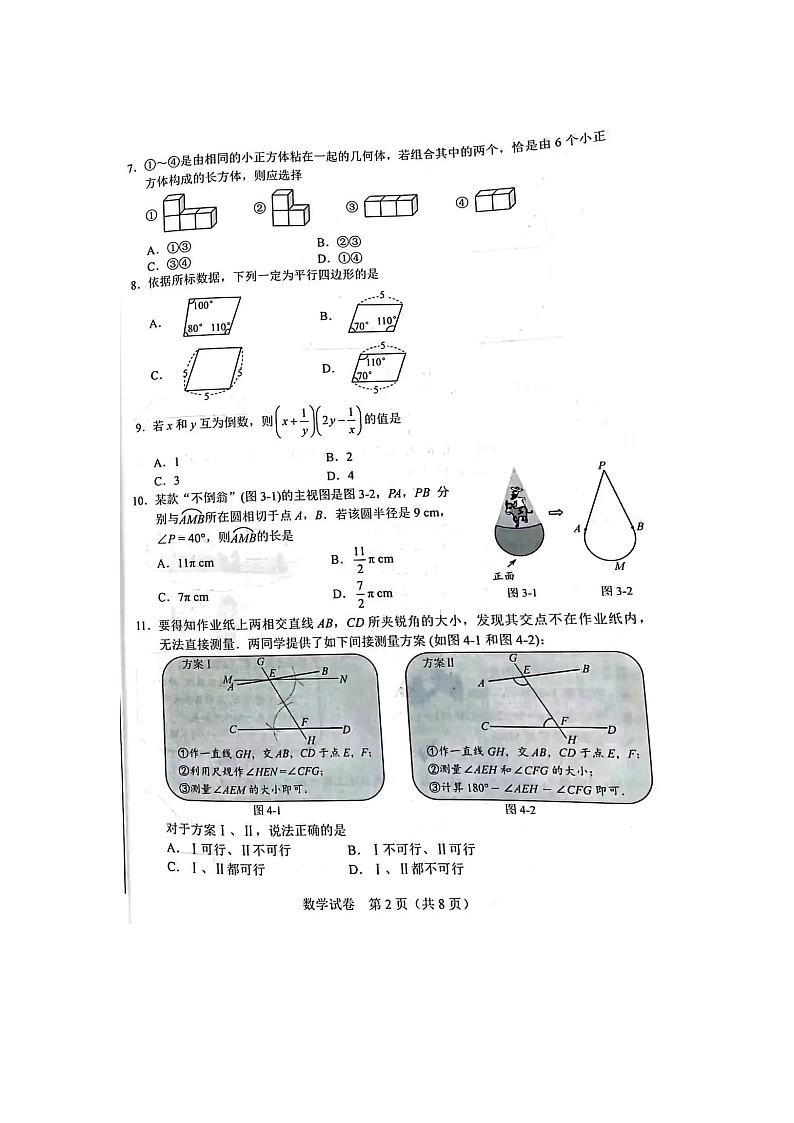 7．①～④是由相同的小正方体粘在一起的几何体，若组合其中的两个，恰是由 6 个小正
方体构成的长方体，则应选择
① ② ③ ④
A．①③ B．②③
C．③④ D．①④
8．依据所标数据，下列一定为平行四边形的是
A． 100° 80° 110° B． 5 70° 110°
C． 5 5 5 D． 5 110° 70° 5
9．若 x 和 y 互为倒数，则(x+1/y)(2y−1/x)的值是
A．1 B．2
C．3 D．4
10．某款“不倒翁”(图 3-1)的主视图是图 3-2，PA，PB 分
别与AMB所在圆相切于点 A，B．若该圆半径是 9 cm，
∠P = 40°，则AMB的长是
A．11π cm B．11/2 π cm
C．7π cm D．7/2 π cm
正面
图 3-1
P
A B
M
图 3-2
11．要得知作业纸上两相交直线 AB，CD 所夹锐角的大小，发现其交点不在作业纸内，
无法直接测量．两同学提供了如下间接测量方案 (如图 4-1 和图 4-2)：
方案Ⅰ
G
M E B N
A
C F D
H
①作一直线 GH，交 AB，CD 于点 E，F；
②利用尺规作∠HEN=∠CFG；
③测量∠AEM 的大小即可．
图 4-1
方案Ⅱ
G
A E B
C F D
H
①作一直线 GH，交 AB，CD 于点 E，F；
②测量∠AEH 和∠CFG 的大小；
③计算 180° − ∠AEH − ∠CFG 即可．
图 4-2
对于方案Ⅰ、Ⅱ，说法正确的是
A．Ⅰ可行、Ⅱ不可行 B．Ⅰ不可行、Ⅱ可行
C．Ⅰ、Ⅱ都可行 D．Ⅰ、Ⅱ都不可行
数学试卷 第 2 页（共 8 页）